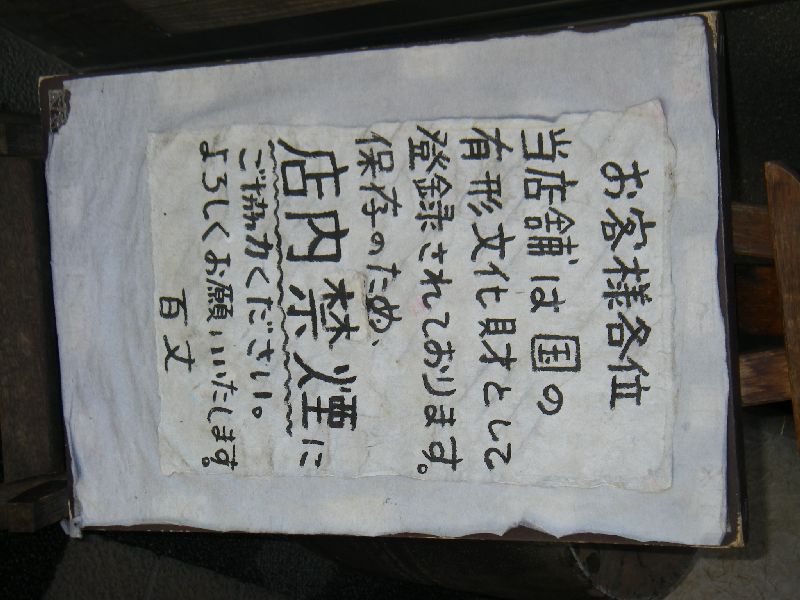 お客様各位
当店舗は国の
有形文化財として
登録されております。
保存のため、
店内禁煙に
ご協力ください。
よろしくお願いいたします。
百丈